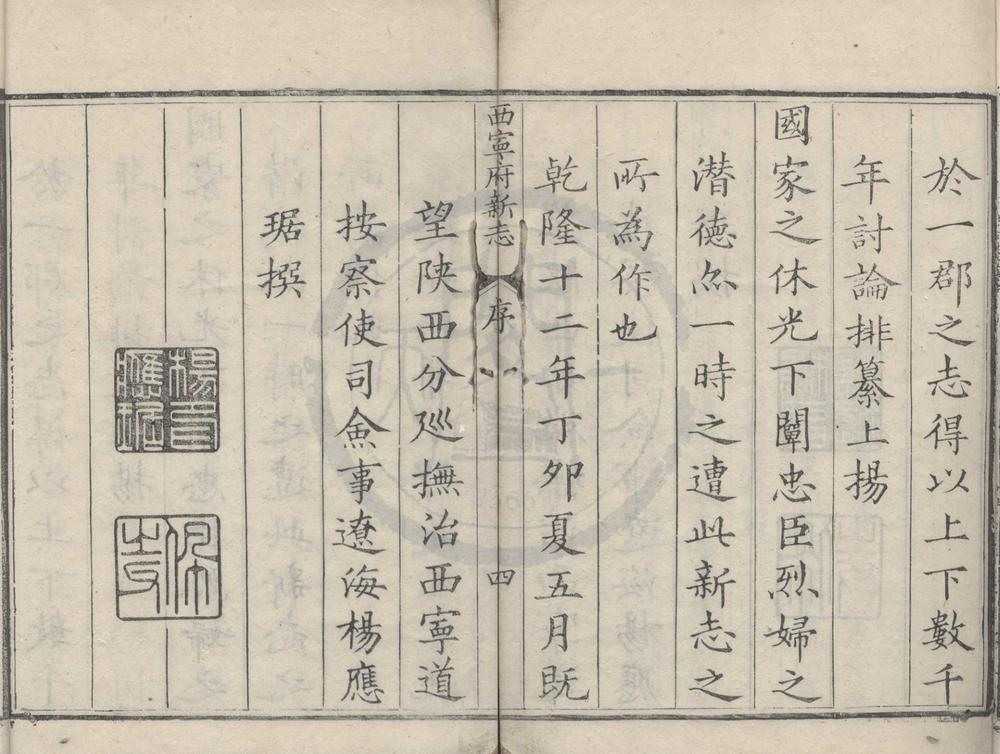 於一郡之志得以上下數千
年討論排纂上揚
國家之休光下闡忠臣烈婦之
潜德尓一時之遭此新志之
所為作也
乾隆十二年丁卯夏五月既
西寧府新志
序
四
望陜西分廵撫治西寧道
按察使司僉事遼海楊應
琚撰
楊應琚印